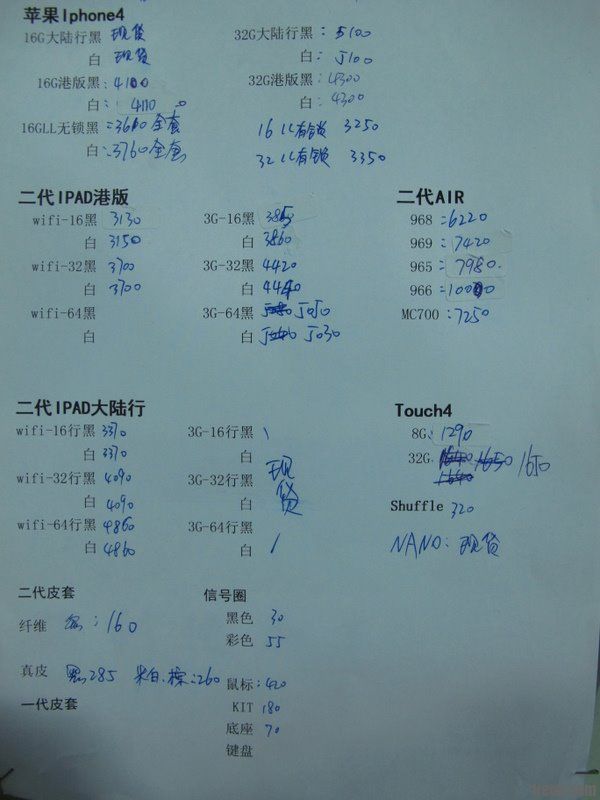 苹果Iphone4
16G大陆行黑 现货 32G大陆行黑: 5100
白 现货 白: 5100
16G港版黑: 4100 32G港版黑: 4300
白: 4110 白: 4300
16GLL无锁黑: 3660全套 16 LL有锁 3250
白: 3760全套 32 LL有锁 3350
二代IPAD港版 二代AIR
wifi-16黑 3130 3G-16黑 3850 968: 6220
白 3150 白 3860 969: 7420
wifi-32黑 3700 3G-32黑 4420 965: 7980.
白 3700 白 4440 966: 10000
wifi-64黑 3G-64黑 5050 MC700: 7250
白 白 5030
二代IPAD大陆行 Touch4
wifi-16行黑 3370 3G-16行黑 8G: 1290
白 3370 白 32G 1650 1650
wifi-32行黑 4090 3G-32行黑 现货
白 4090 白 Shuffle 320
wifi-64行黑 4860 3G-64行黑 NANO: 现货
白 4860 白
二代皮套 信号圈
黑色 30
纤维 : 160
彩色 55
真皮 黑285 米白.棕:260 鼠标: 420
一代皮套 KIT 180
底座 70
键盘